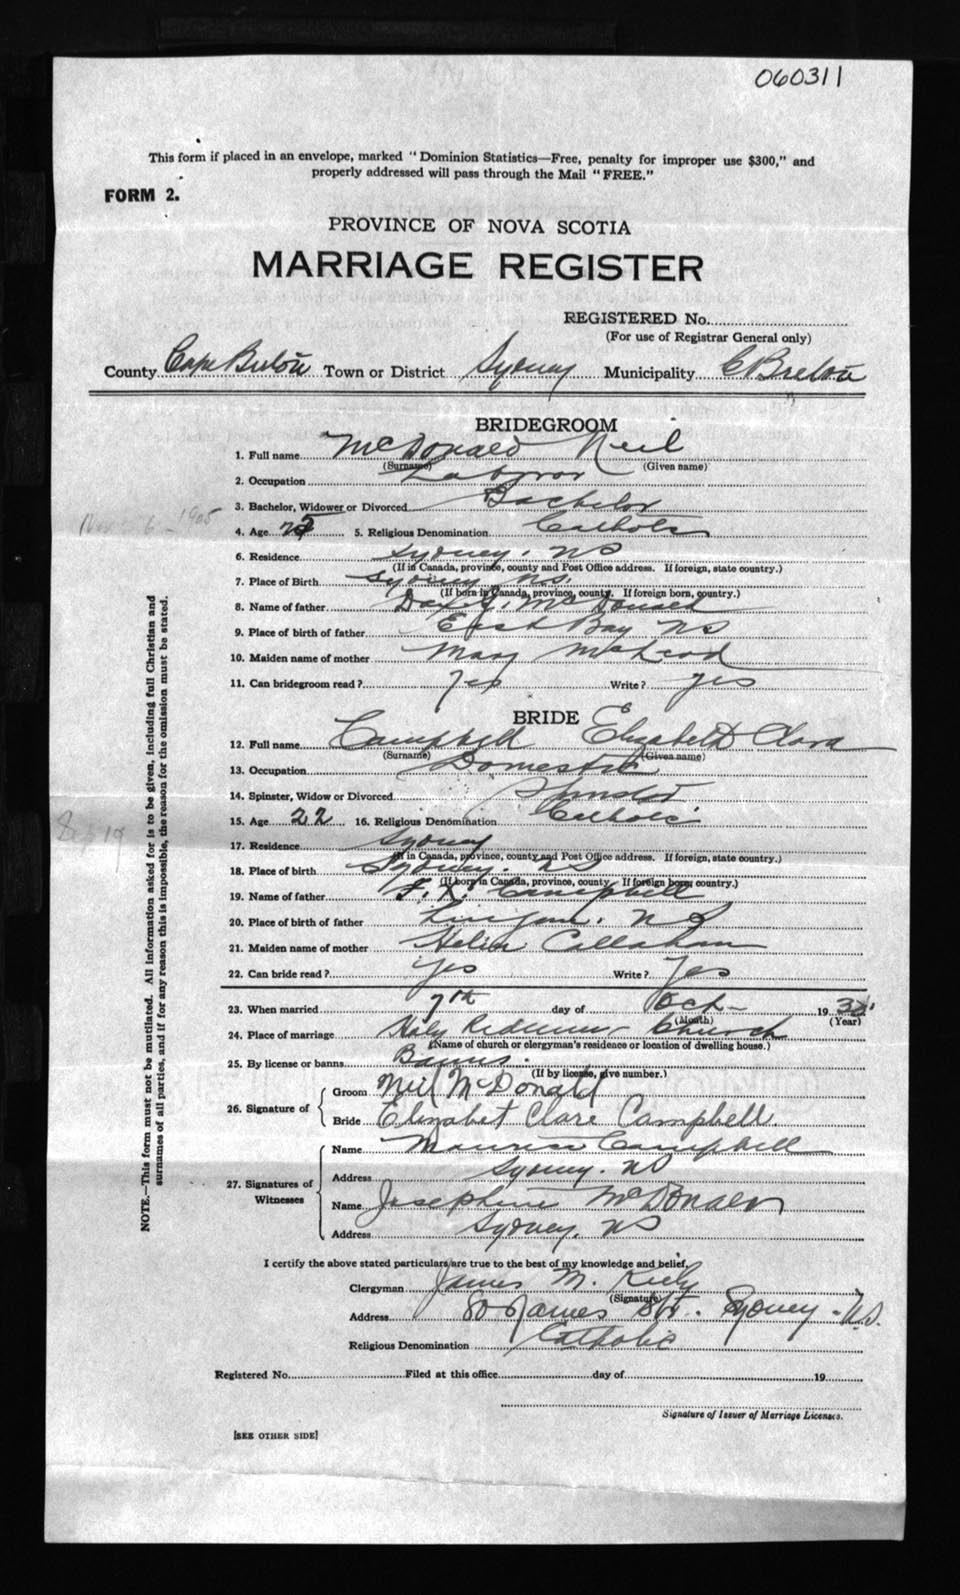 060311
This form if placed in an envelope, marked "Dominion Statistics—Free, penalty for improper use $300," and
properly addressed will pass through the Mail "FREE."
FORM 2.
PROVINCE OF NOVA SCOTIA
MARRIAGE REGISTER
REGISTERED No.
(For use of Registrar General only)
County Cape Breton Town or District Sydney Municipality C Breton
BRIDEGROOM
1. Full name McDonald Neil
(Surname) (Given name)
2. Occupation Laboror
3. Bachelor, Widower or Divorced Bachelor
1905
4. Age 25 5. Religious Denomination Catholic
6. Residence Sydney. NS
(If in Canada, province, county and Post Office address. If foreign, state country.)
7. Place of Birth Sydney NS.
(If born in Canada, province, county. If foreign born, country.)
8. Name of father McDonald
9. Place of birth of father East Bay NS
10. Maiden name of mother Mary McLeod
11. Can bridegroom read? Yes Write? Yes
BRIDE
12. Full name Campbell Elizabeth Clara
(Surname) (Given name)
13. Occupation Domestic
14. Spinster, Widow or Divorced Spinster
15. Age 22 16. Religious Denomination Catholic
17. Residence Sydney
(If in Canada, province, county and Post Office address. If foreign, state country.)
18. Place of birth Sydney. NS
(If born in Canada, province, county. If foreign born, country.)
19. Name of father F. X. Campbell
20. Place of birth of father Lingan. NS
21. Maiden name of mother Helen Callahan
22. Can bride read? Yes Write? Yes
23. When married 7th day of Oct- 1930
(Month) (Year)
24. Place of marriage Holy Redeemer Church
(Name of church or clergyman's residence or location of dwelling house.)
25. By license or banns Banns.
(If by license, give number.)
26. Signature of
Groom Neil McDonald
Bride Elizabet Clare Campbell.
27. Signatures of Witnesses
Name Maurice Campbell
Address Sydney. NS
Name Josephine McDonald
Address Sydney, NS
I certify the above stated particulars are true to the best of my knowledge and belief.
Clergyman James M. Kiely
(Signature)
Address 80 James St. Sydney - N.S.
Religious Denomination Catholic
Registered No. Filed at this office day of 19
Signature of Issuer of Marriage Licenses.
[SEE OTHER SIDE]
NOTE.—This form must not be mutilated. All information asked for is to be given, including full Christian and
surnames of all parties, and if for any reason this is impossible, the reason for the omission must be stated.